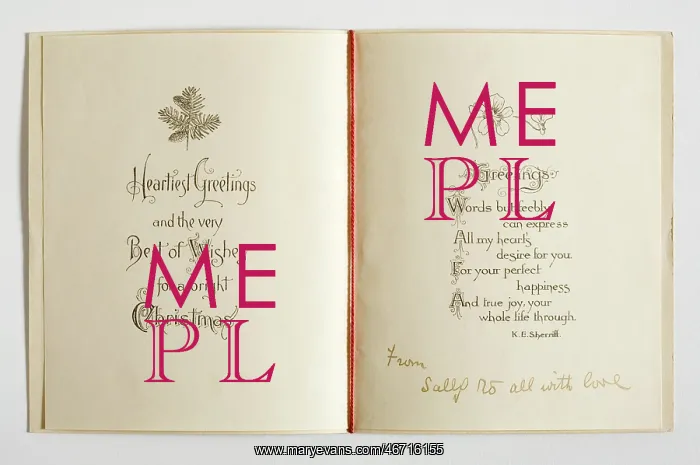 Heartiest Greetings
and the very
Best of Wishes
for a bright
Christmas
ME
PL
ME
PL
Greetings
Words but feebly
can express
All my heart's
desire for you.
For your perfect
happiness
And true joy, your
whole life through.
K.E. Sherriff.
From
Sally to all with love
www.maryevans.com/46716155